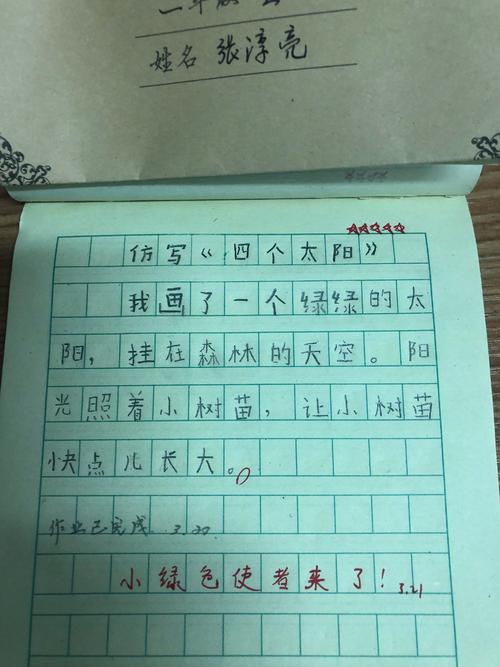 姓名 张淳亮
仿写《四个太阳》
我画了一个绿绿的太
阳，挂在森林的天空。阳
光照着小树苗，让小树苗
快点儿长大。
作业已完成 3.20
小绿色使者来了！3.21